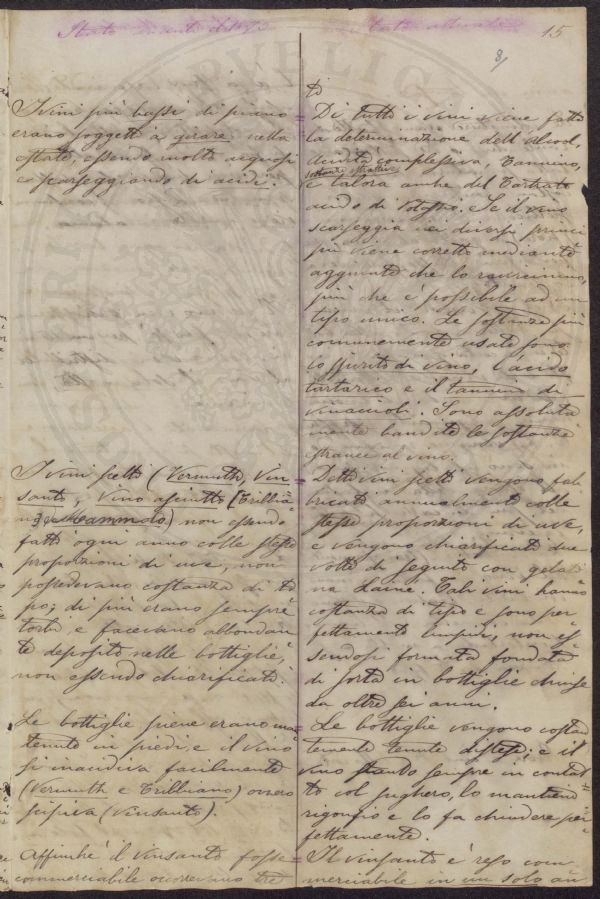 Stato antecedente
Stato attuale
15
8/
I vini più bassi di piano
erano soggetti a girare nella
estate, essendo molto acquosi
e scarseggiando di acidi.
I vini scelti (Vermuth, Vin-
santo, vino asciutto (Trebbia-
no) e Mammolo) non essendo
fatti ogni anno colle stesse
proporzioni di uve, non
possedevano costanza di ti
po; di più erano sempre
torbi e facevano abbondan
te deposito nelle bottiglie,
non essendo chiarificati.
Le bottiglie piene erano man
tenute in piedi, e il vino
si inacidiva facilmente
(Vermuth e Trebbiano) ovvero
scipiva (Vinsanto).
Affinchè il vinsanto fosse
commerciabile occorrevano tre
ti
Di tutti i vini viene fatta
la determinazione dell'alcool,
acidità complessiva, Tannino,
sostanze estrattive
e talora anche del Tartrato
acido di Potassio. Se il vino
scarseggia nei diversi princi
pii viene corretto mediante
aggiunte che lo ravvicinino,
più che è possibile ad un
tipo unico. Le sostanze più
comunemente usate sono
lo spirito di vino, l'acido
tartarico e il tannino di
vinacciuoli. Sono assoluta
mente bandite le sostanze
estranee al vino.
Detti vini scelti vengono fab
bricati annualmente colle
stesse proporzioni di uve,
e vengono chiarificati due
volte di seguito con gelati
na Lainé. Tali vini hanno
costanza di tipo e sono per
fettamente limpidi, non es
sendosi formata fondata
di sorta in bottiglie chiuse
da oltre sei anni.
Le bottiglie vengono costan
temente tenute distese; e il
vino stando sempre in contat
to col sughero, lo mantiene
rigonfio e lo fa chiudere per
fettamente.
Il vinsanto è reso com
merciabile in un solo an